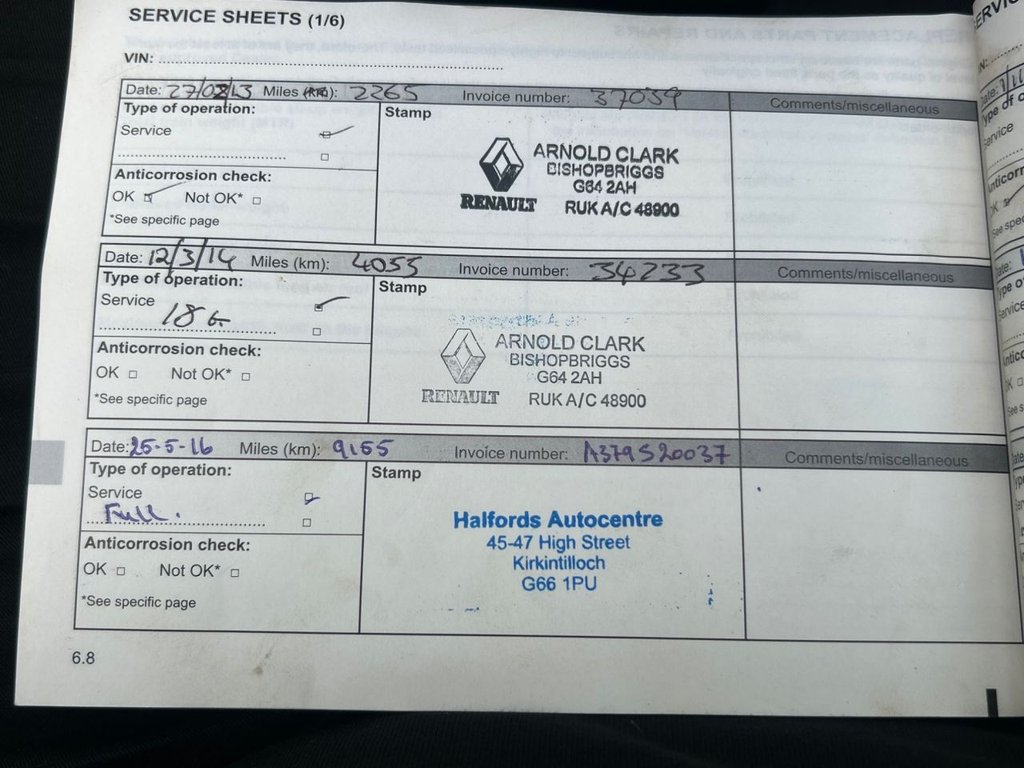 SERVICE SHEETS (1/6)
VIN:
Date: 27/02/13 Miles (km): 2265 Invoice number: 37039 Comments/miscellaneous
Type of operation:
Service
Stamp
ARNOLD CLARK
BISHOPBRIGGS
G64 2AH
RENAULT RUK A/C 48900
Anticorrosion check:
OK Not OK*
*See specific page
Date: 12/3/14 Miles (km): 4055 Invoice number: 34233 Comments/miscellaneous
Type of operation:
Service
Stamp
ARNOLD CLARK
BISHOPBRIGGS
G64 2AH
RENAULT RUK A/C 48900
Anticorrosion check:
OK Not OK*
*See specific page
Date: 25-5-16 Miles (km): 9155 Invoice number: A379520037 Comments/miscellaneous
Type of operation:
Service
Full.
Stamp
Halfords Autocentre
45-47 High Street
Kirkintilloch
G66 1PU
Anticorrosion check:
OK Not OK*
*See specific page
6.8